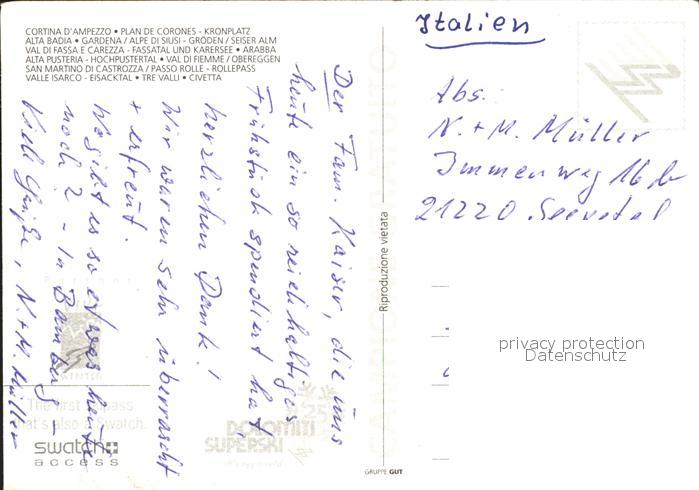 CORTINA D'AMPEZZO • PLAN DE CORONES - KRONPLATZ
ALTA BADIA • GARDENA / ALPE DI SIUSI - GRÖDEN / SEISER ALM
VAL DI FASSA E CAREZZA - FASSATAL UND KARERSEE • ARABBA
ALTA PUSTERIA - HOCHPUSTERTAL • VAL DI FIEMME / OBEREGGEN
SAN MARTINO DI CASTROZZA / PASSO ROLLE - ROLLEPASS
VALLE ISARCO - EISACKTAL • TRE VALLI • CIVETTA
Der Fam. Kaiser, die uns
heute ein so reichhaltiges
Frühstück spendiert hat,
herzlichen Dank!
Wir waren sehr überrascht
+ erfreut.
Wo gibt es so etwas heute
noch? - In Bamberg -
Viele Grüße, N. + M. Müller
WINTER
The first ski pass
that's also a Swatch.
swatch
access
DOLOMITI
SUPERSKI
Riproduzione vietata
GRUPPE GUT
Italien
Abs.
N. + M. Müller
Immenweg 16 b
21220 Seevetal
privacy protection
Datenschutz